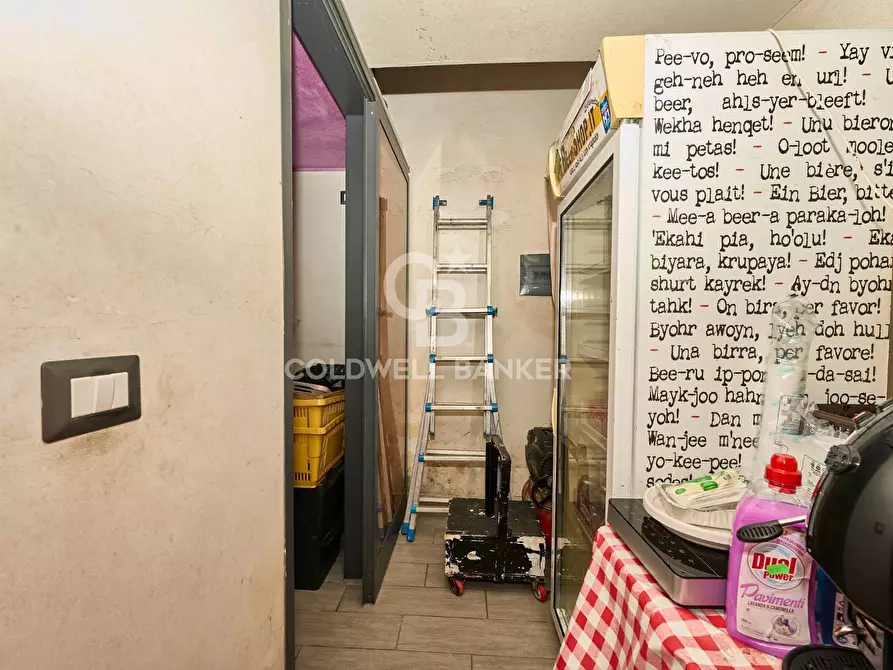 Pee-vo, pro-seem! - Yay
geh-neh heh en url! -
beer, ahls-yer-bleeft!
Wekha henqet! - Unu bieron
mi petas! - O-loot moole
kee-tos! - Une bière, s'i
vous plait! - Ein Bier, bitte
- Mee-a beer-a paraka-loh!
'Ekahi pia, ho'olu! - Eka
biyara, krupaya! - Edj pohar
shurt kayrek! - Ay-dn byohr
tahk! - On bira, per favor!
Byohr awoyn, lyeh doh hull
- Una birra, per favore!
Bee-ru ip-pon -da-sai!
Mayk-joo hahn joo-se-
yoh! - Dan
Wan-jee m'nee
yo-kee-pee!
COLDWELL BANKER
CB
Dual
Power
Pavimenti
LAVANDA & CAMOMILLA